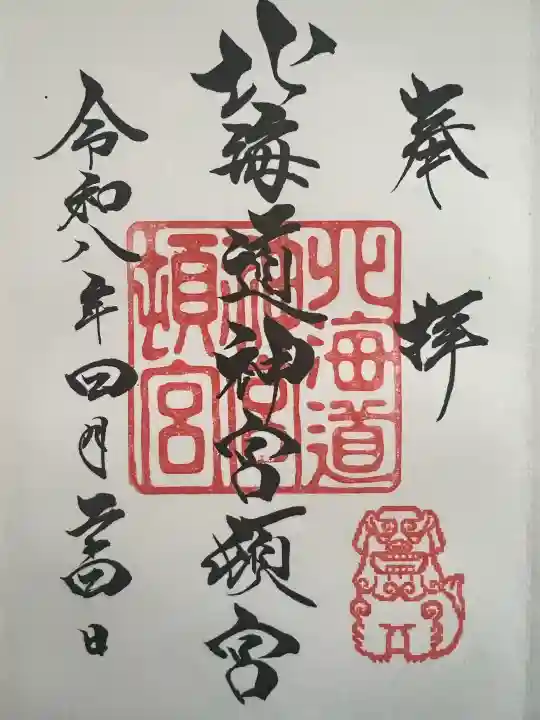 奉拝
北海道神宮頓宮
令和八年四月二十四日
北海道
神宮
頓宮